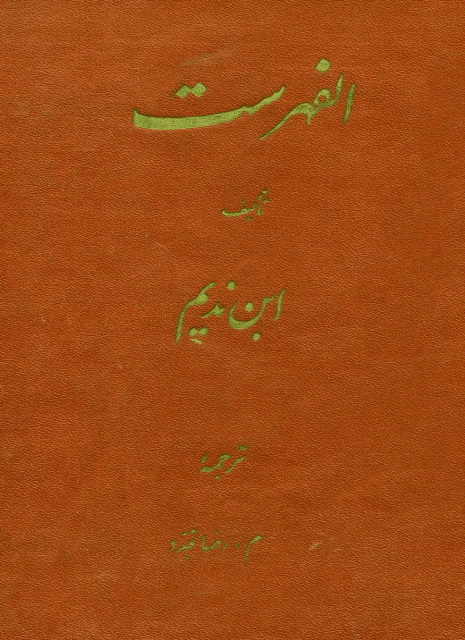 الفهرست
تألیف
ابن ندیم
ترجمهٔ
م. رضا تجدد